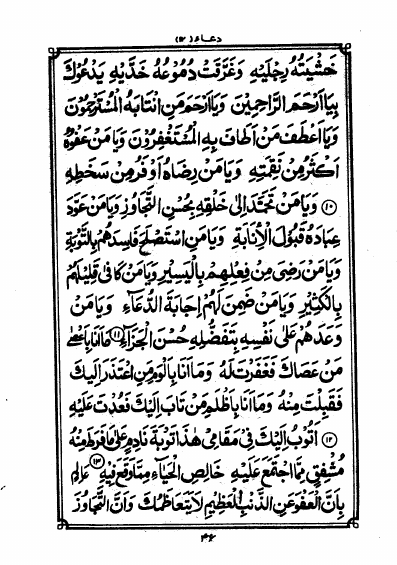 دعاء (١٢)
خَشْيَتُهُ رِجْلَيْهِ وَغَرَّقَتْ دُمُوعُهُ خَدَّيْهِ يَدْعُوكَ
بِيَا اَرْحَمَ الرَّاحِمِينَ وَيَا اَرْحَمَ مَنِ انْتَابَهُ الْمُسْتَرْحِمُونَ
وَيَا اَعْطَفَ مَنْ اَطَافَ بِهِ الْمُسْتَغْفِرُونَ وَيَا مَنْ عَفْوُهُ
اَكْثَرُ مِنْ نَقِمَتِهِ وَيَا مَنْ رِضَاهُ اَوْفَرُ مِنْ سَخَطِهِ
(١٠) وَيَا مَنْ تَحَمَّدَ اِلَى خَلْقِهِ بِحُسْنِ التَّجَاوُزِ وَيَا مَنْ عَوَّدَ
عِبَادَهُ قَبُولَ الْاِنَابَةِ وَيَا مَنِ اسْتَصْلَحَ فَاسِدَهُمْ بِالتَّوْبَةِ
وَيَا مَنْ رَضِيَ مِنْ فِعْلِهِمْ بِالْيَسِيرِ وَيَا مَنْ كَافَى قَلِيلَهُمْ
بِالْكَثِيرِ وَيَا مَنْ ضَمِنَ لَهُمْ اِجَابَةَ الدُّعَاءِ وَيَا مَنْ
وَعَدَهُمْ عَلَى نَفْسِهِ بِتَفَضُّلِهِ حُسْنَ الْجَزَاءِ (١١) مَا اَنَا بِاَعْصَى
مَنْ عَصَاكَ فَغَفَرْتَ لَهُ وَمَا اَنَا بِاَلْوَمِ مَنِ اعْتَذَرَ اِلَيْكَ
فَقَبِلْتَ مِنْهُ وَمَا اَنَا بِاَظْلَمِ مَنْ تَابَ اِلَيْكَ فَعُدْتَ عَلَيْهِ
(١٢) اَتُوبُ اِلَيْكَ فِي مَقَامِي هٰذَا تَوْبَةَ نَادِمٍ عَلَى مَا فَرَطَ مِنْهُ
مُشْفِقٍ مِمَّا اجْتَمَعَ عَلَيْهِ خَالِصِ الْحَيَاءِ مِمَّا وَقَعَ فِيهِ (١٣) عَالِمٍ
بِاَنَّ الْعَفْوَ عَنِ الذَّنْبِ الْعَظِيمِ لَا يَتَعَاظَمُكَ وَاَنَّ التَّجَاوُزَ